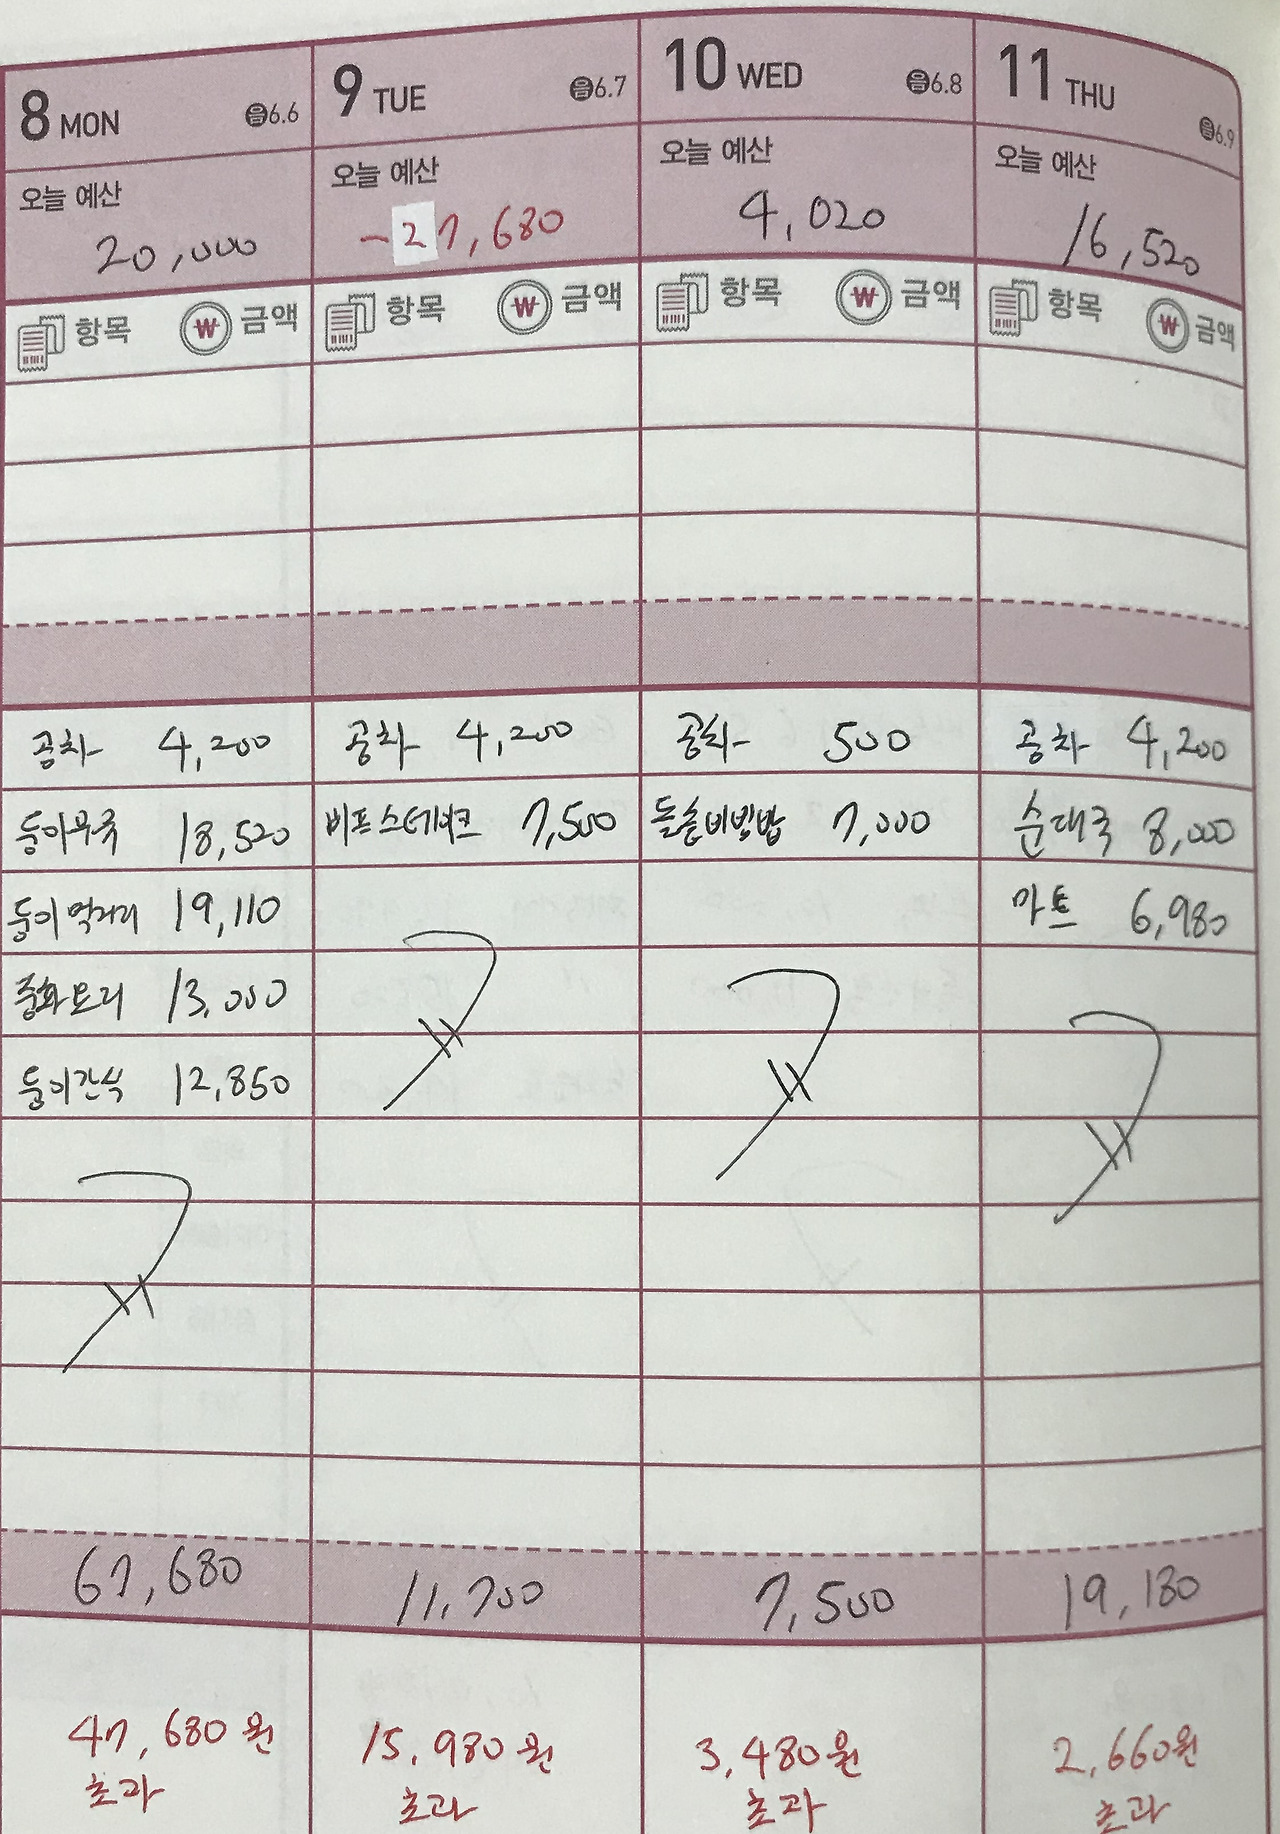 8 MON 음6.6
오늘 예산
20,000
항목 금액
공차 4,200
둥이우주 18,520
둥이먹거리 19,110
중화요리 13,000
둥이간식 12,850
67,680
47,680원
초과
9 TUE 음6.7
오늘 예산
-27,680
항목 금액
공차 4,200
비프스테이크 7,500
11,700
15,980원
초과
10 WED 음6.8
오늘 예산
4,020
항목 금액
공차 500
돌솥비빔밥 7,000
7,500
3,480원
초과
11 THU 음6.9
오늘 예산
16,520
항목 금액
공차 4,200
순대국 8,000
마트 6,980
19,180
2,660원
초과